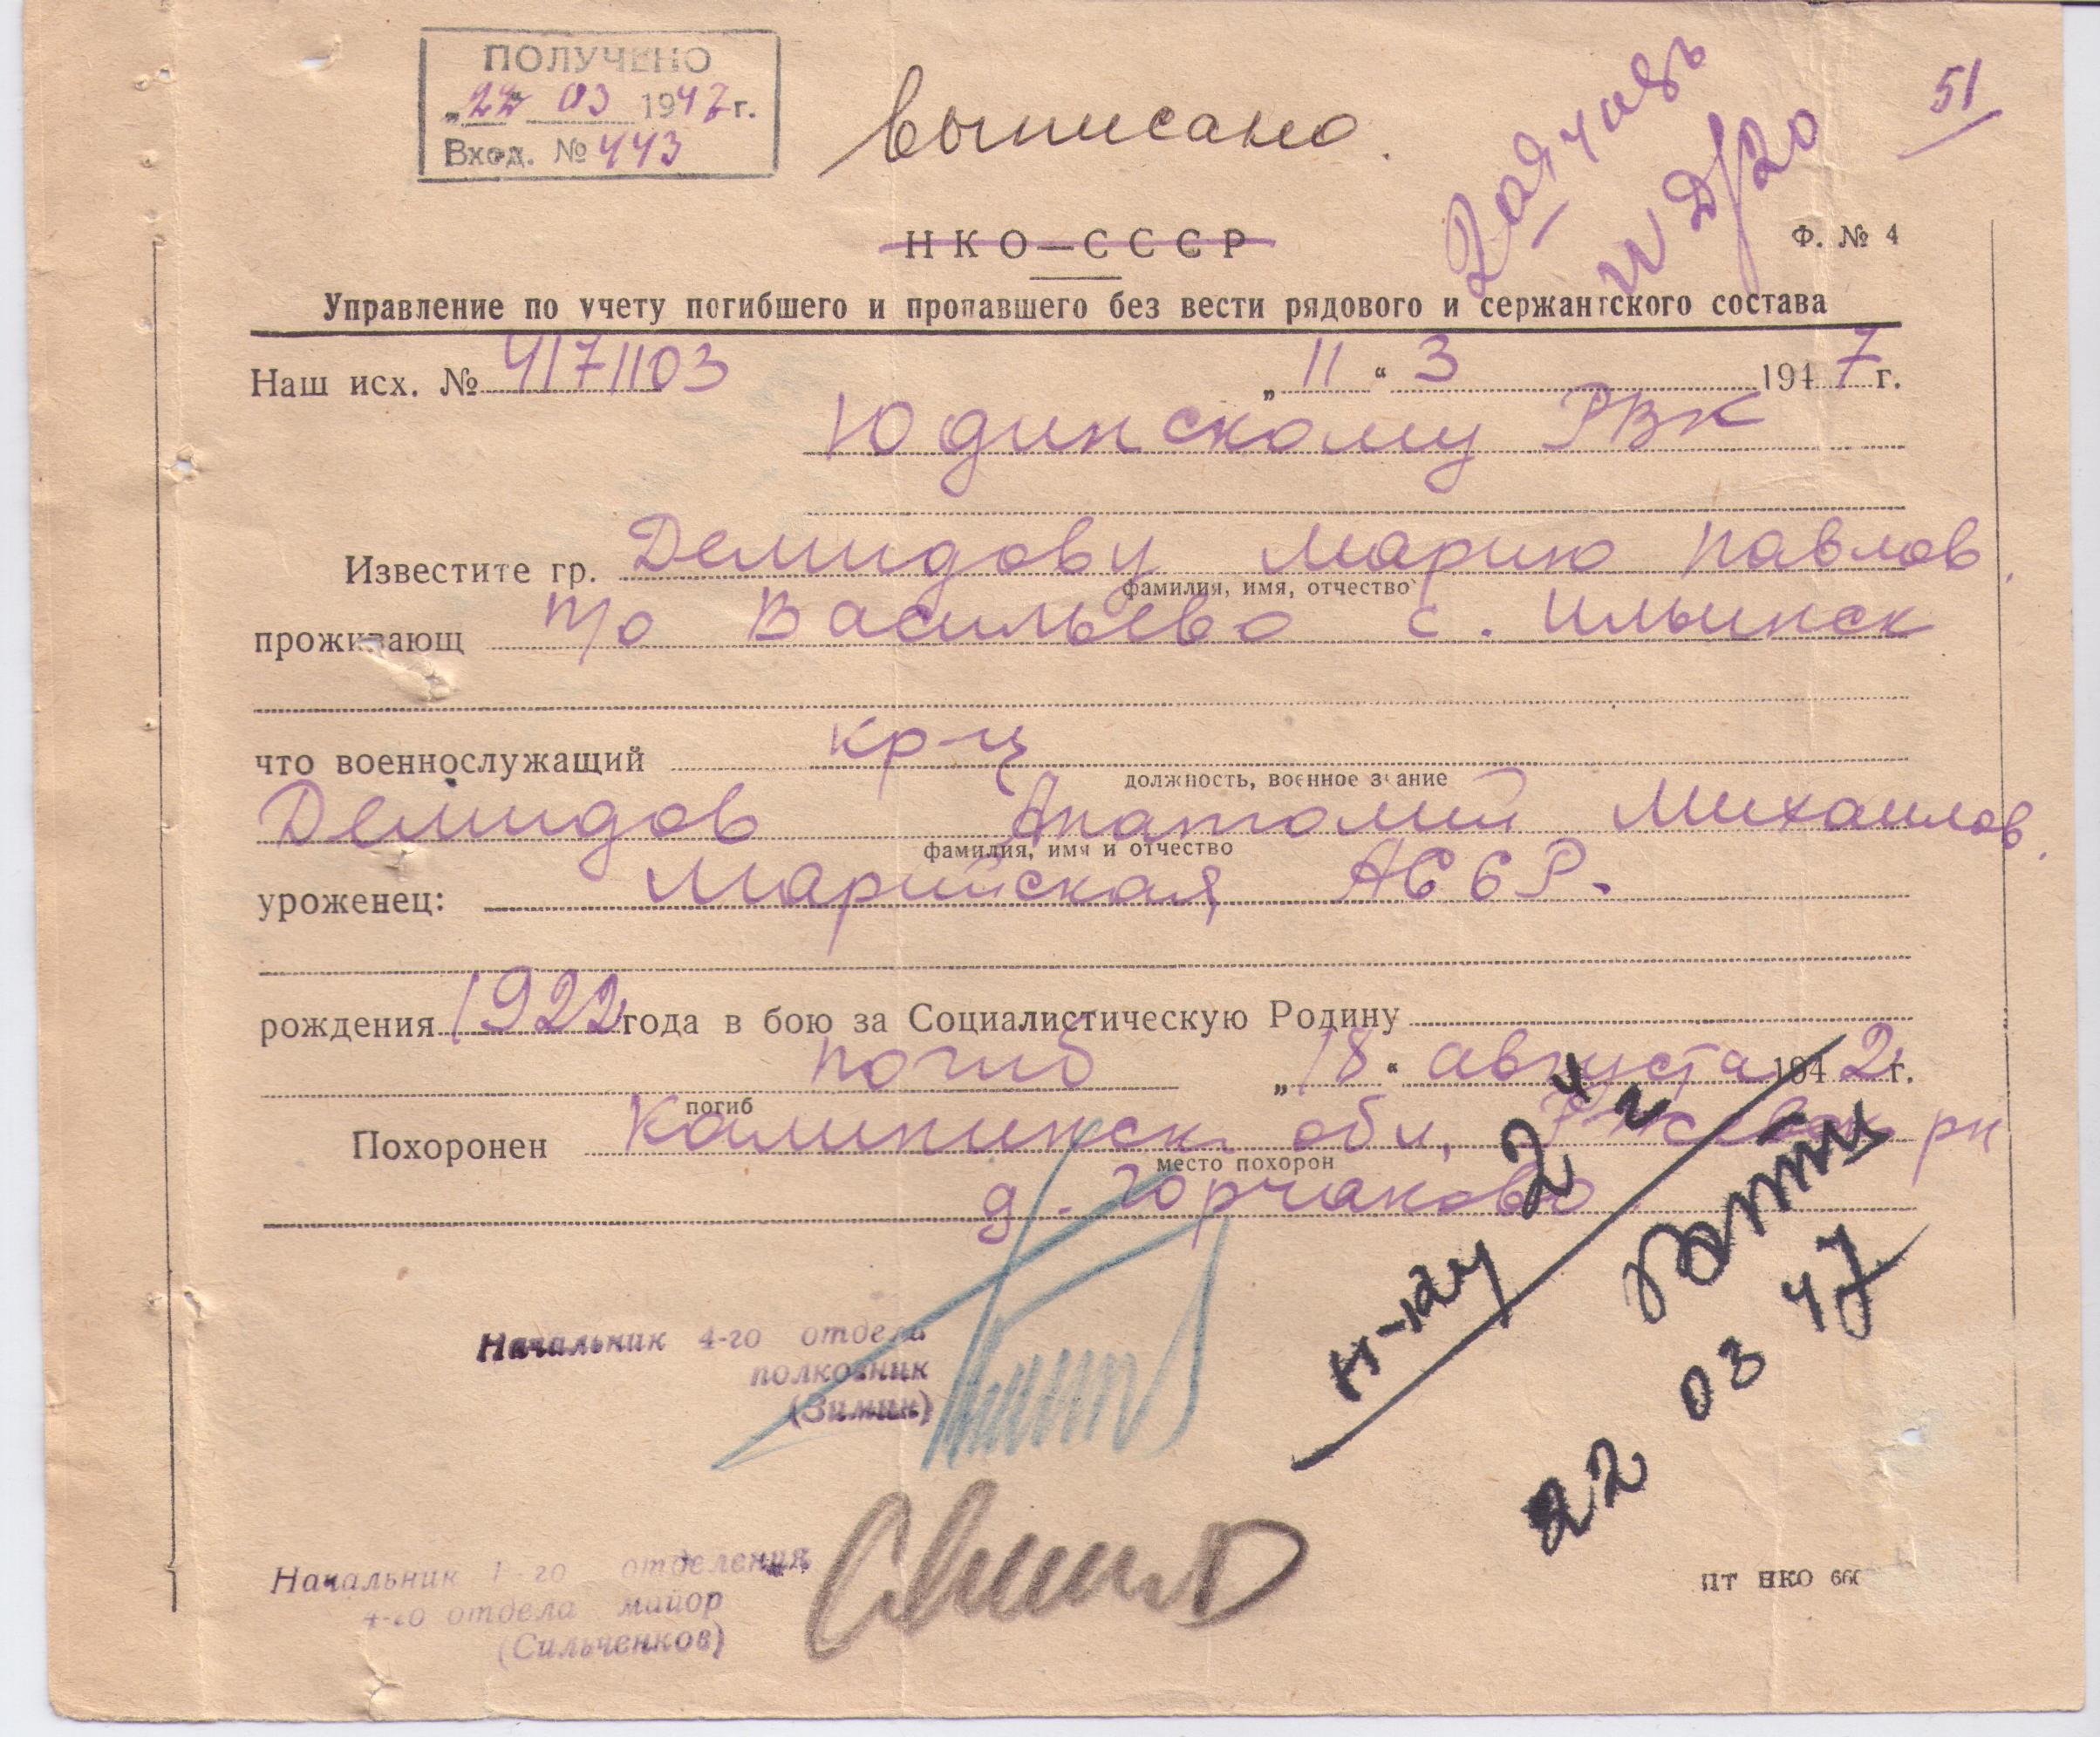 ПОЛУЧЕНО
„22" 03 1947 г.
Вход. № 443
выписано.
51
НКО—СССР
Ф. № 4
Управление по учету погибшего и пропавшего без вести рядового и сержантского состава
Наш исх. № 4171103 „11“ 3 1947 г.
Юдинскому РВК
Известите гр. Демидову Марию Павлов.
фамилия, имя, отчество
проживающ п/о Васильево с. Ильинск
что военнослужащий кр-ц
должность, военное звание
Демидов Анатолий Михаилов.
фамилия, имя и отчество
уроженец: Марийская АССР.
рождения 1922 года в бою за Социалистическую Родину
погиб „18“ августа 1942 г.
погиб
Похоронен Калининск. обл. Ржевск рн
место похорон
д. Горчаково
Н-ку 2 ч
22 03 47
Начальник 4-го отдела
полковник
(Зимин)
Начальник 1-го отделения
4-го отдела майор
(Сильченков)
пт нко